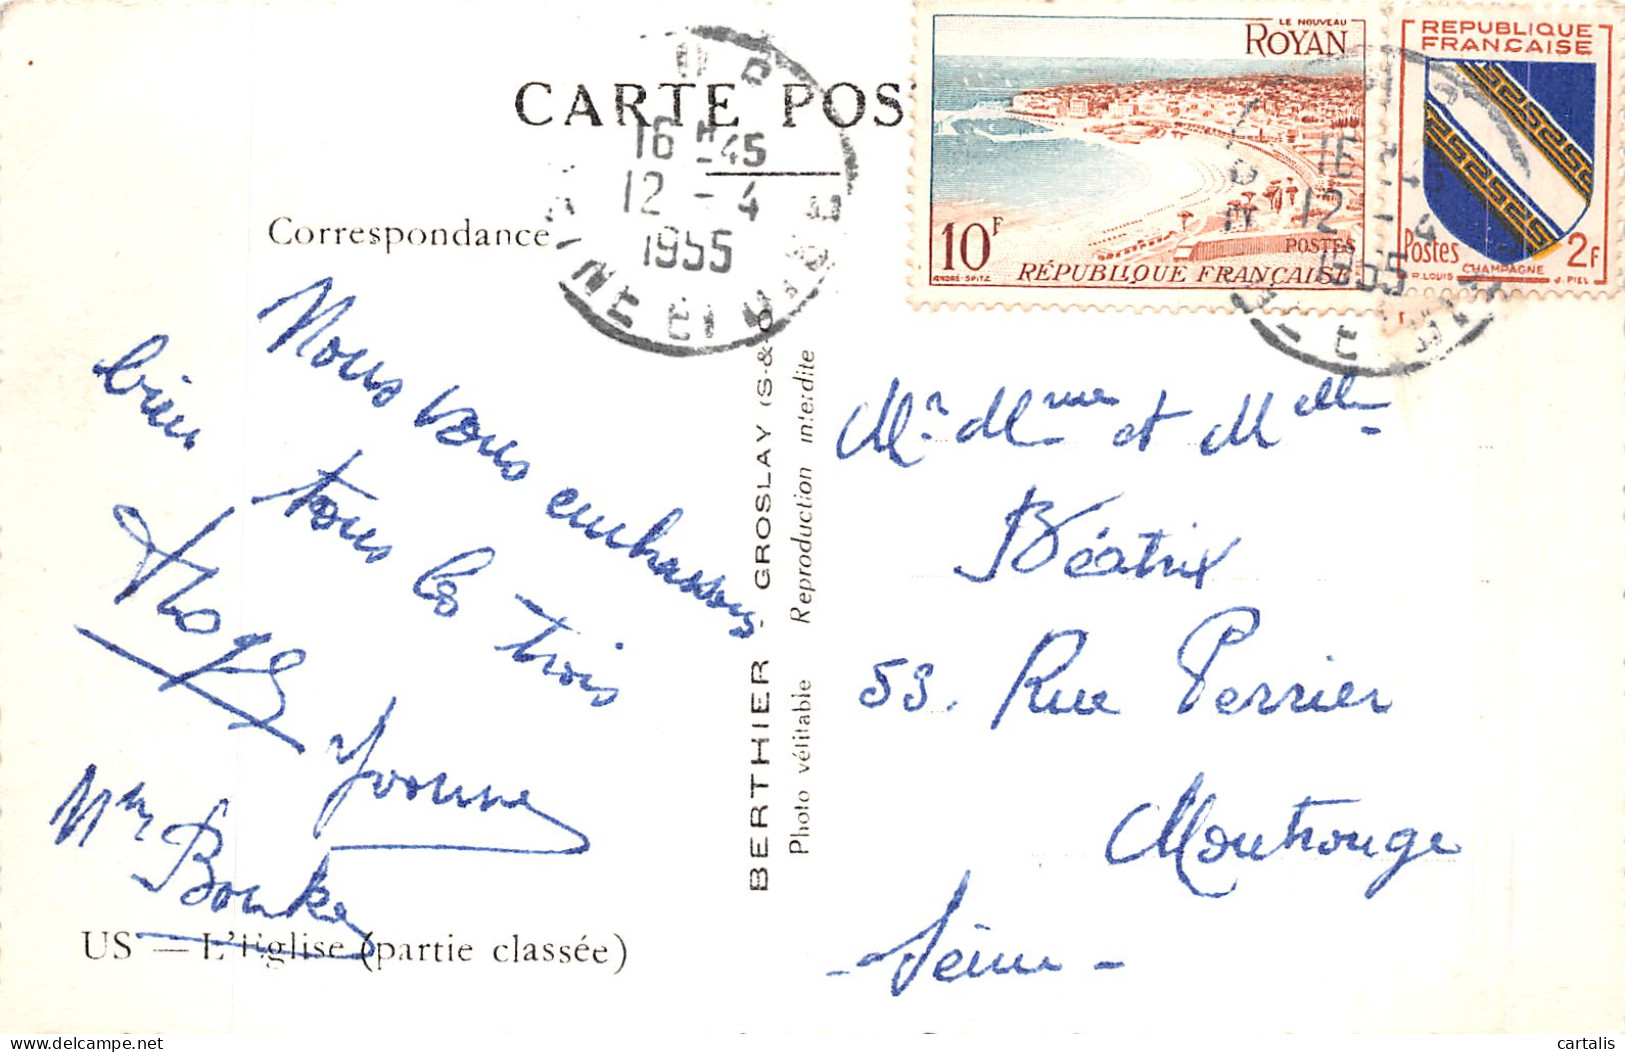 CARTE POS
16 H -45
12 - 4
1955
SEINE ET
LE NOUVEAU
ROYAN
10F
POSTES
ANDRÉ-SPITZ
RÉPUBLIQUE FRANÇAISE
REPUBLIQUE
FRANÇAISE
Postes
2F
R. LOUIS
CHAMPAGNE
J. PIEL
16
12 - 4
1955
Correspondance
Nous vous embrassons
bien tous les trois
Yvonne
Mme
US — L'Eglise (partie classée)
BERTHIER - GROSLAY (S-&-O
Photo véritable Reproduction interdite
Mr Mme et Melle
Béatrix
53. Rue Perrier
Montrouge
- Seine -
cartalis